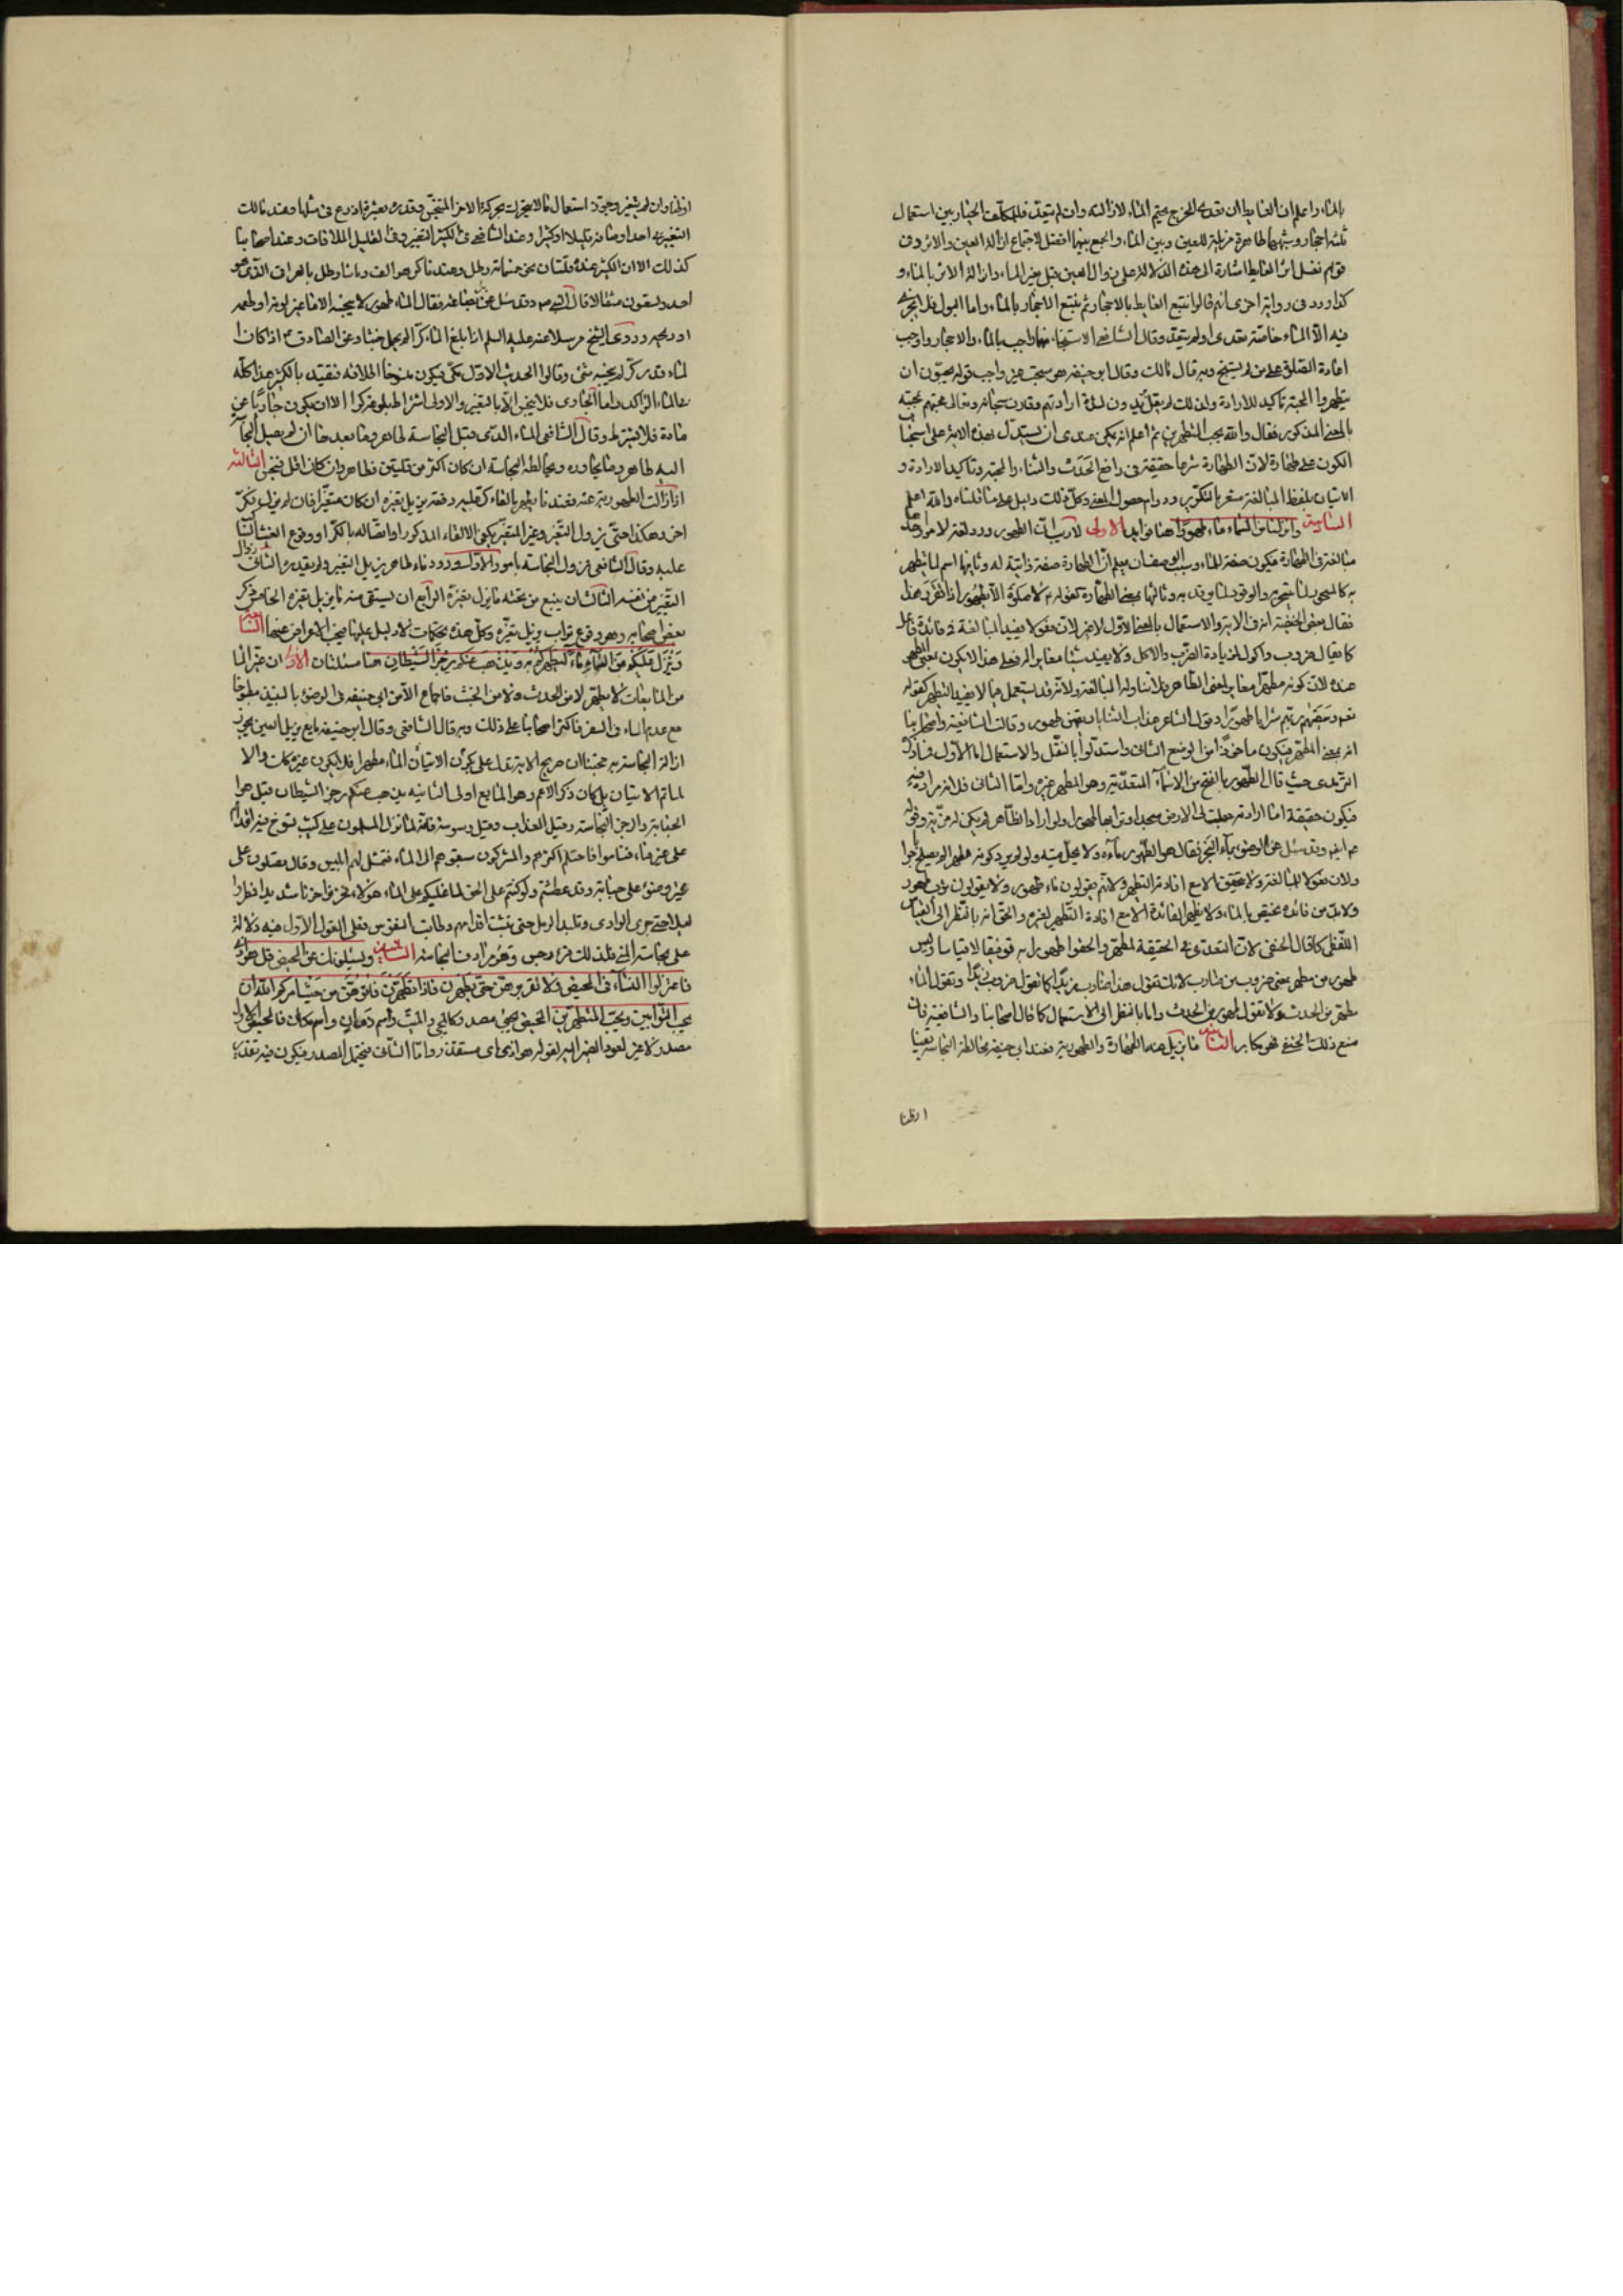 بالماء واعلم ان الغايط ان تعدى المخرج تحتم الماء لازالته وان لم يتعد فالمكلف بالخيار بين استعمال
ثلثة احجار وشبهها طاهرة مزيلة للعين وبين الماء والجمع بينهما افضل لاجتماع ازالة العين والاثر وفى
قولهم نغسل اثر الغايط اشارة الى هذه الدلالة على زوال العين قبل بغير الماء وازالة الاثر بالماء و
كذا ورد فى رواية اخرى انهم قالوا نتبع الغايط بالاحجار ثم نتبع الاحجار بالماء واما البول فلا يجزى
فيه الا الماء خاصة تعدى او لم يتعد وقال الشافعى الاستنجاء منهما واجب بالماء والاحجار واوجب
اعادة الصلوة على من لم يستنج وبه قال مالك وقال ابو حنيفه هو مستحب غير واجب قوله يحبون ان
يتطهروا المحبة تاكيد للارادة
بالمعنى المذكور فقال والله يحب المطهرين ثم اعلم انه يمكن عندى ان يستدل بهذه الاية على استحباب
الكون على طهارة لان الطهارة شرعا حقيقة فى رافع الحدث والثناء والمحبة وتاكيد الارادة و
الاتيان بلفظ المبالغة مشعر بالتكرير ودوام حصول المعنى وكل ذلك دليل على ما قلناه والله اعلم
السادسة وانزلنا من السماء ماء طهورا هنا فوايد الاولى لا ريب ان الطهور ورد لغة لامور احدها
مبالغة فى الطهارة فيكون صفة للماء
به كالسحور لما يتسحر به والوقود لما يوقد به وثالثها بمعنى الطهارة كقوله ع لا صلوة الا بطهور اذا تقرر هذا
فقال بعض الحنفية انه فى الاية والاستعمال بالمعنى الاول لا غير لان فعولا يفيد المبالغة فى فائدة فاعل
كما يقال ضروب واكول لزيادة الضرب والاكل ولا يفيد شيئا مغايرا له فعلى هذا لا يكون بمعنى المطهر
عنده لان كونه مطهرا مغاير لمعنى الطاهر فلا تتناوله المبالغة ولانه قد يستعمل فيما لا يفيد التطهير كقوله
تعم وسقيهم ربهم شرابا طهورا وقول الشاعر عذاب الثنايا ريقهن طهور وقالت الشافعية واصحابنا
انه بمعنى المطهر فيكون ماخوذا من الوضع الثانى واستدلوا بالنقل والاستعمال اما الاول فما ذكره
الترمذى حيث قال الطهور بالفتح من الاسماء المتعدية وهو المطهر غيره واما الثانى فلانه مراد فيه
فيكون حقيقة اما ارادته جعلت لى الارض مسجدا وترابها طهورا ولو اراد الطاهر لم يكن له مزية وقوله
وقد سئل عن الوضوء بماء البحر فقال هو الطهور ماؤه ولا يحل ميته ولو لم يرد كونه مطهرا لم يصلح جوابا
ولان فعولا للمبالغة ولا يتحقق الا مع افادة التطهير ولانهم يقولون ماء طهور ولا يقولون ثوب طهور
ولا بد من فائدة تختص بالماء ولا يظهر الفائدة الا مع افادة التطهير لغيره والحق انه بالنظر الى القياس
اللفظى كما قال الحنفى لان التعدى فى الحقيقة لمطهر
طهور من مطهر بمعنى ضروب من ضارب لانك تقول هذا ضارب زيدا كما تقول ضروب زيدا وتقول الماء
مطهر من الحدث ولا تقول طهور من الحدث واما بالنظر الى الاستعمال كما قال اصحابنا والشافعية فان
منع ذلك الحنفى فهو مكابر الثانية ما يزيل هذه الطهارة والطهورية فعند ابى حنيفة مخالطة النجاسة يقينا
او ظنا
او ظنا وان لم يتغير وجوز استعمال ما لا يتحرك بحركة الاخر المتنجس وقدره بعشرة اذرع فى مثلها وعند مالك
التغير فى احد اوصافه قليلا او كثيرا وعند الشافعى فى الكثير التغير وفى القليل الملاقات وعند اصحابنا
كذلك الا ان الكثير عنده قلتان نحو خمسمائة رطل وعندنا كر هو الف وماتا رطل بالعراقى الذى هو
احد وتسعون مثقالا قال النبى ص وقد سئل عن بئر بضاعة فقال الماء طهور لا ينجسه الا ما غير لونه او طعمه
او ريحه وروى الشيخ مرسلا عنه عليه السلم اذا بلغ الماء كرا لم يحمل خبثا وعن الصادق ع اذا كان
الماء قدر كر لم ينجسه شئ وقالوا الحديث الاول مكى فيكون منسوخا اطلاقه فيقيد بالكثير هذا كله
فى الماء الراكد واما الجارى فلا ينجس الا بالتغير والاولى اشتراطه بلوغه كرا الا ان يكون جاريا عن
مادة فلا يشترط وقال الشافعى الماء الذى قبل النجاسة طاهر وما بعدها ان لم يصل النجاسة
اليه طاهر وما يجاوره ويخالطه النجاسة ان كان اكثر من قلتين فطاهر وان كان اقل فنجس الثالثة
اذا زالت الطهورية عنه فعندنا يطهر بالقاء كر عليه دفعة يزيل تغيره ان كان متغيرا فان لم يزل فكر
اخر وهكذا حتى يزول التغير وغير المتغير يكفى الالقاء المذكور او اتصاله بالكر او وقوع الغيث
عليه وقال الشافعى يزول النجاسة بامور الاول ورود ماء طاهر يزيل التغير ولم يقيده الثانى زوال
التغير من نفسه الثالث ان ينبع من تحته ما يزيل تغيره الرابع ان يستقى منه ما يزيل تغيره الخامس ذكر
بعض اصحابه وهو وقوع تراب يزيل تغيره وكل هذه تحكمات لا دليل عليها فيجب الاعراض عنها السابعة
وينزل عليكم من السماء ماء ليطهركم به ويذهب عنكم رجز الشيطان هنا مسئلتان الاولى ان غير الماء
من المايعات لا يطهر لا من الحدث ولا من الخبث فاجماع الا من ابى حنيفه فى الوضوء بالنبيذ مطبوخا
مع عدم الماء فى السفر فاكثر اصحابنا على ذلك وبه قال الشافعى وقال ابو حنيفة مايع يزيل العين يجوز
ازالة النجاسة به حجتنا ان صريح الاية تدل على كون الاتيان الماء مطهرا فلا يكون غيره كذلك والا
لما تم الامتنان بل كان ذكر الاعم وهو المايع اولى الثانيه يذهب عنكم رجز الشيطان قيل هو
الجنابة والرجز النجاسة وقيل العذاب وقيل وسوسته فانه لما نزل المسلمون على كثيب تسوخ فيه اقدامهم
على غير ماء فناموا فاحتلم اكثرهم والمشركون سبقوهم الى الماء فتمثل لهم ابليس وقال تصلون على
غير وضوء على جنابة وقد عطشتم ولو كنتم على الحق لما غلبكم على الماء هؤلاء فحزنوا حزنا شديدا فمطروا
ليلا حتى جرى الوادى وتلبد الرمل حتى تثبت اقدامهم وطابت النفوس فعلى القول الاول فيه دلالة
على نجاسة المنى فلذلك قرئ رجس وهو مرادف النجاسة الثامنة ويسئلونك عن المحيض قل هو اذى
فاعتزلوا النساء فى المحيض ولا تقربوهن حتى يطهرن فاذا تطهرن فاتوهن من حيث امركم الله ان
يحب التوابين ويحب المتطهرين المحيض يجئ مصدر كالمجئ والمبيت واسم زمان واسم مكان فالمحيض الاول
مصدر لا غير لعود الضمير اليه لقوله هو اذى اى مستقذر واما الثانى فيحتمل المصدر فيكون فيه تقدير